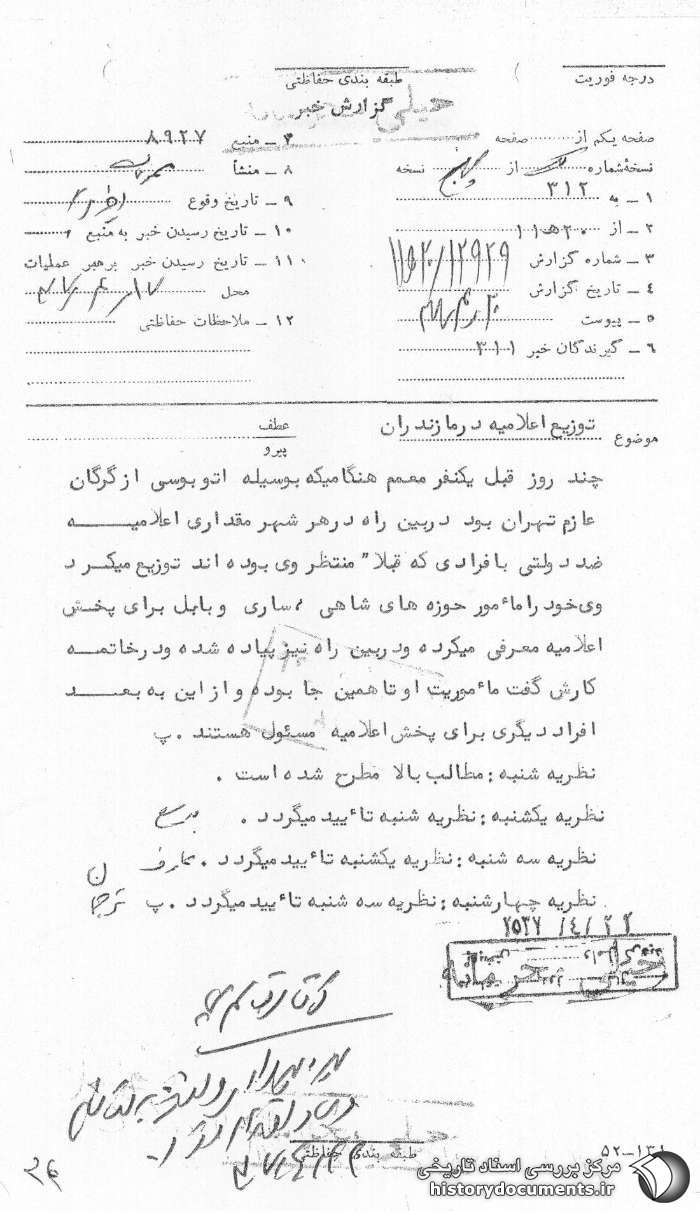 درجه فوریت
طبقه بندی حفاظتی
گزارش خبر
خیلی
صفحه یکم از صفحه
نسخه شماره یک از پنج نسخه
۱ ـ به ۳۱۲
۲ ـ از ۲۰ھ۱۱
۳ ـ شماره گزارش ۱۲۹۲۹/۲۰ھ۱۱
۴ ـ تاریخ گزارش
۵ ـ پیوست
۶ ـ گیرندگان خبر ۳۱۱
۷ ـ منبع ۸۹۲۷
۸ ـ منشأ
۹ ـ تاریخ وقوع
۱۰ ـ تاریخ رسیدن خبر به منبع
۱۱ ـ تاریخ رسیدن خبر برهبر عملیات
محل
۱۲ ـ ملاحظات حفاظتی
موضوع توزیع اعلامیه درمازندران
عطف
پیرو
چند روز قبل یکنفر معمم هنگامیکه بوسیله اتوبوسی ازگرگان
عازم تهران بود دربین راه درهر شهر مقداری اعلامیـــه
ضد دولتی بافرادی که قبلا" منتظر وی بوده اند توزیع میکرد
وی خود را مأمور حوزه های شاهی ، ساری وبابل برای پخش
اعلامیه معرفی میکرده ودربین راه نیز پیاده شده ودرخاتمـه
کارش گفت مأموریت او تاهمین جا بوده و ازاین به بعـــد
افراد دیگری برای پخش اعلامیه مسئول هستند . پ
نظریه شنبه : مطالب بالا مطرح شده است .
نظریه یکشنبه : نظریه شنبه تأیید میگردد .
نظریه سه شنبه : نظریه یکشنبه تأیید میگردد . عارف
نظریه چهارشنبه : نظریه سه شنبه تأیید میگردد . پ
۲۵۳۷ /۴/ ۲۲
خیلی محرمانه
طبقه بندی حفاظتی
۵۲-۱۳۱
مرکز بررسی اسناد تاریخی
historydocuments.ir